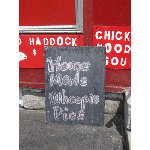 O HADDOCK
$
CHICK
OOD
SOU
Home
Made
Whoopie
Pies